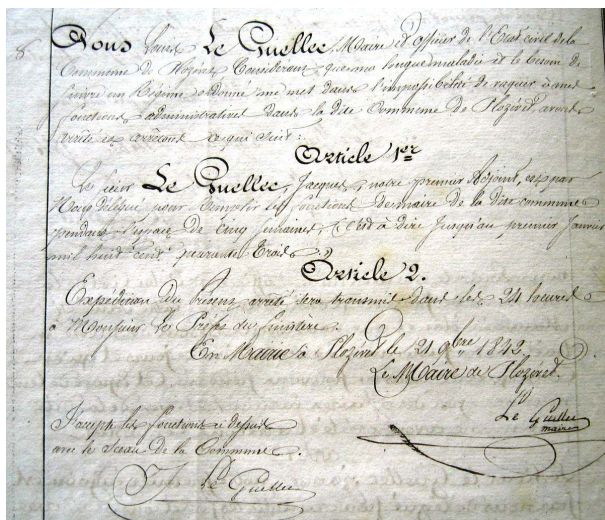 Nous Louis Le Guellec, Maire et officier de l'Etat civil de la
Commune de Plozévet Considérant que ma longue maladie et le besoin de
suivre un Régime ordonné me met dans l'impossibilité de vaquer à mes
fonctions administratives dans la dite Commune de Plozévet, avons
arrêté et arrêtons ce qui suit:
Article 1er
Le sieur Le Guellec, Jacques, notre premier Adjoint, est par
Nous délégué pour remplir les fonctions de maire de la dite commune
pendant l'espace de cinq semaines, C'est à dire jusqu'au premier Janvier
mil huit cent quarante trois.
Article 2.
Expédition du présent arrêté sera transmis dans les 24 heures
à Monsieur Le Préfet du finistère.
En Mairie à Plozévet le 21 9bre 1842.
Le Maire de Plozévet.
Le Guellec
maire
J'accepte les fonctions ci dessus
avec le Sceau de la Commune.
J Le Guellec